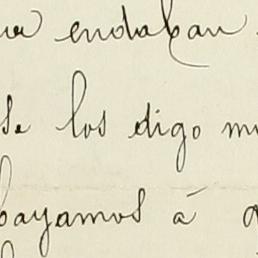 endaban
se los digo
bayamos á